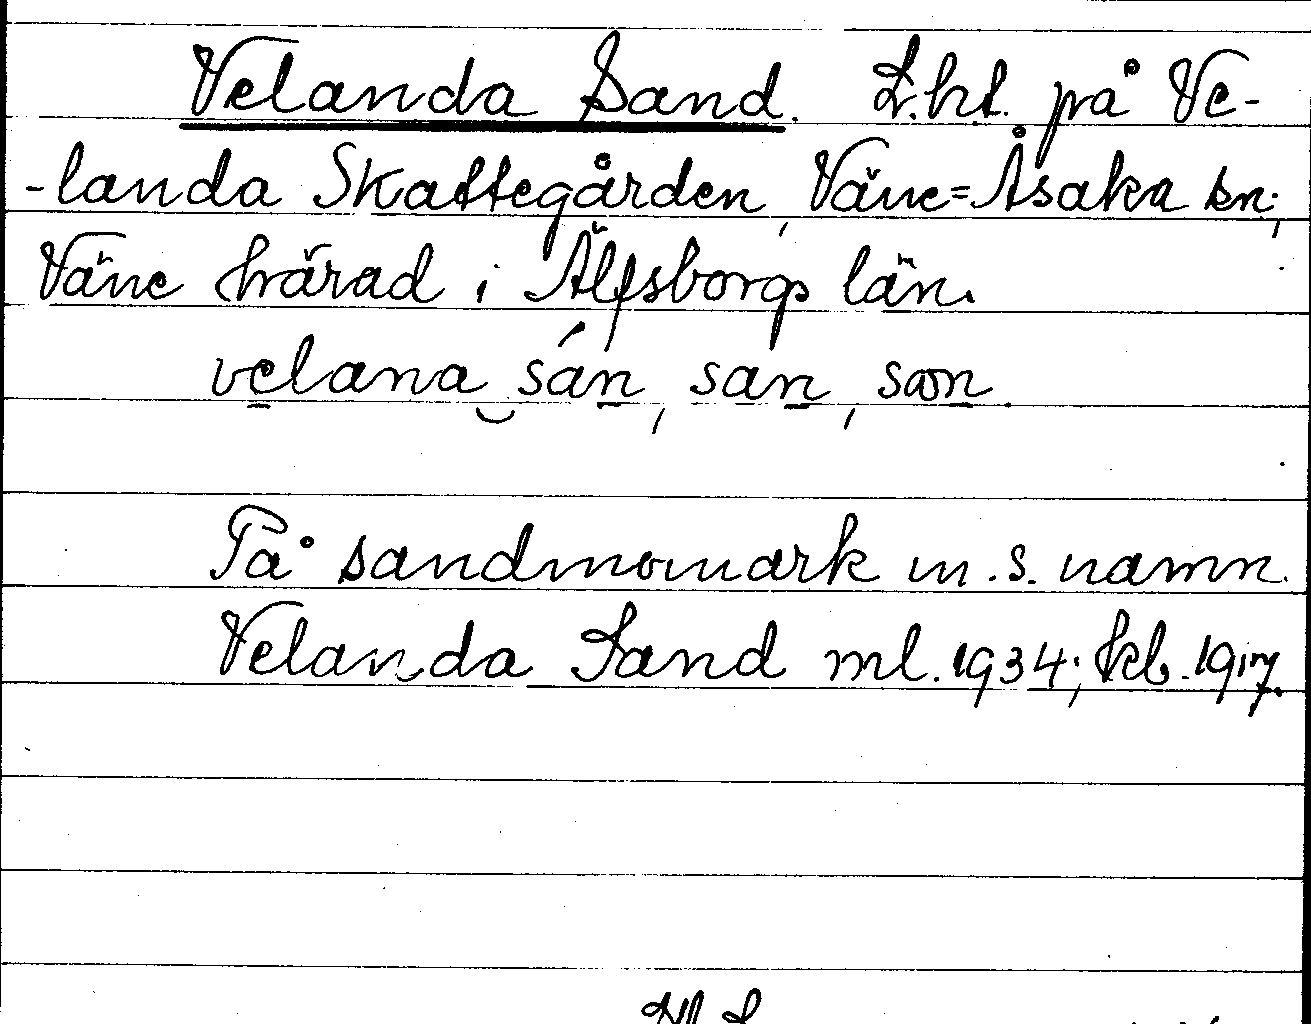 Velanda Sand. L.ht. på Ve-
-landa Skattegården, Väne=Åsaka sn;
Väne härad i Älfsborgs län.
velana sán, san, son.
På sandmomark m.s. namn.
Velanda Sand ml. 1934; kb. 1917.